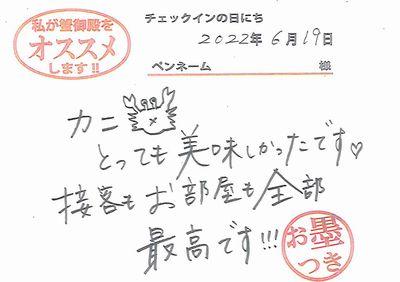 私が蟹御殿を
オススメ
します!!
チェックインの日にち
2022年 6月19日
ペンネーム 様
カニ
とっても美味しかったです♡
接客もお部屋も全部
最高です!!!
お墨
つき